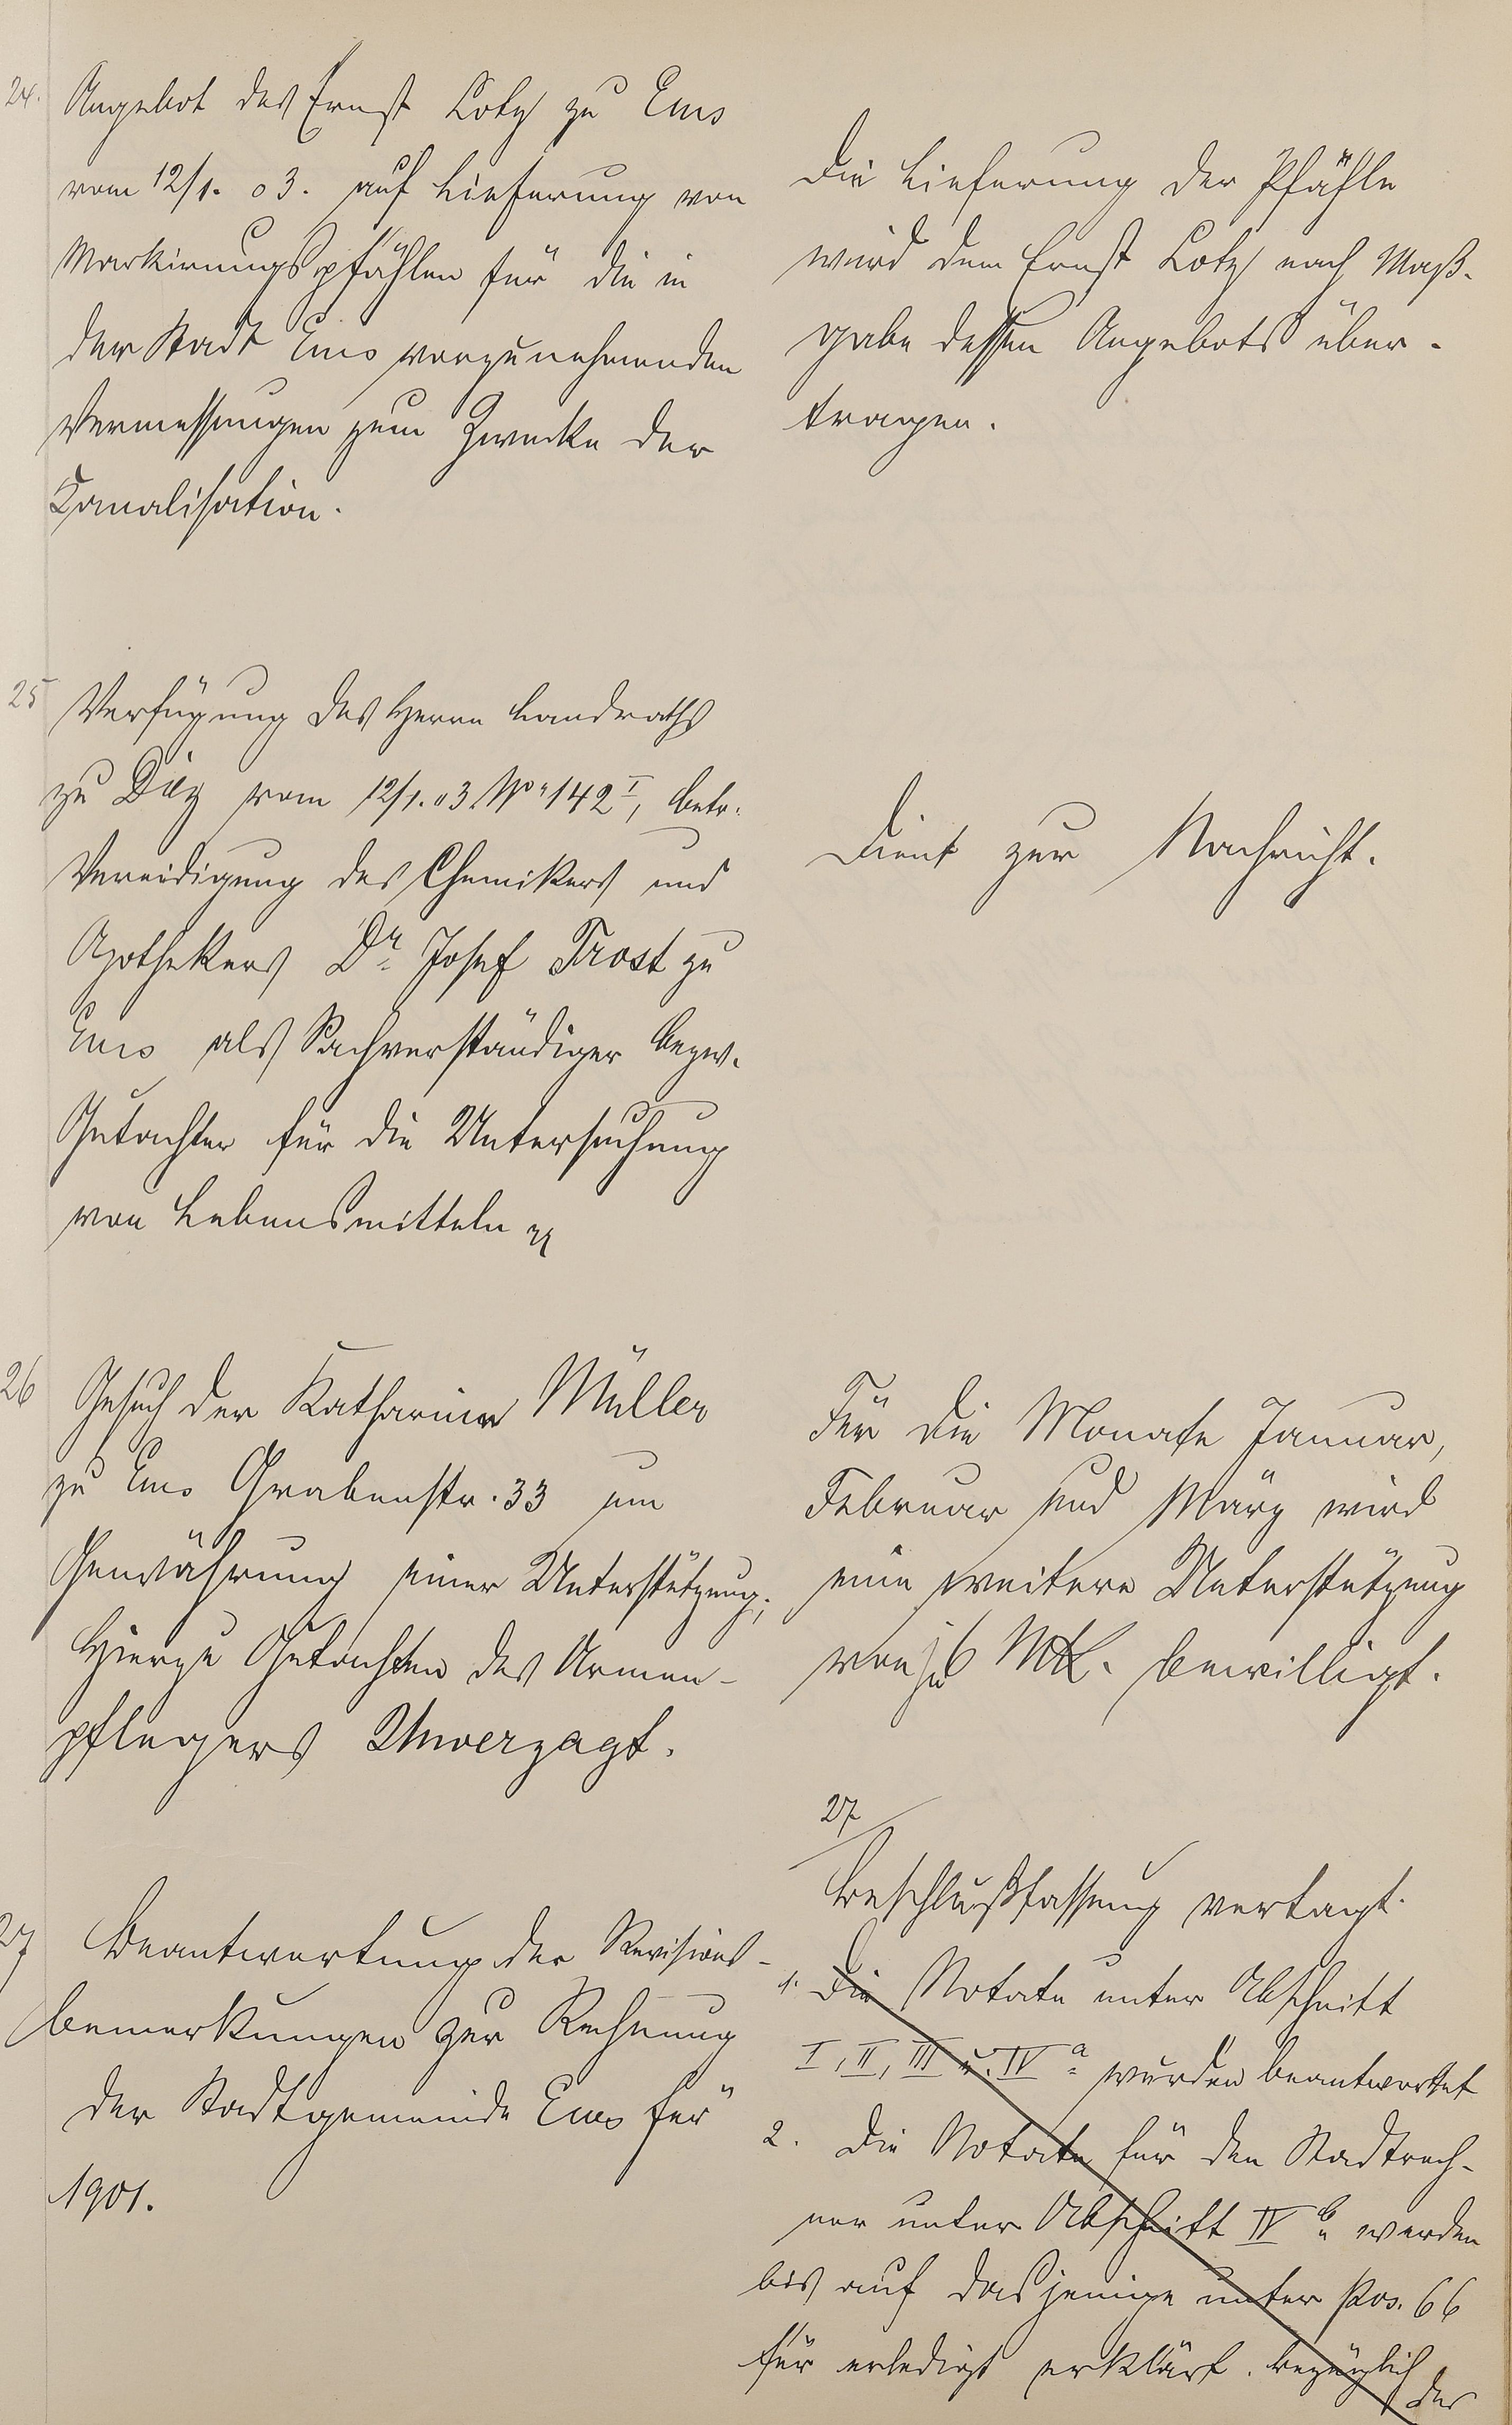 24.
Angebot des Ernst Lotz zu Ems
vom 12/1. 03. auf Lieferung von
Markirungspfählen für die in
der Stadt Ems vorzunehmenden
Vermessungen zum Zwecke der
Kanalisation.
Die Lieferung der Pfähle
wird dem Ernst Lotz nach Maß-
gabe dessen Angebots über-
tragen.
25
Verfügung des Herrn Landraths
zu Diez vom 12/1. 03. No 142 I, betr.
Vereidigung des Chemikers und
Apothekers Dr. Josef Trost zu
Ems als Sachverständiger bezw.
Gutachter für die Untersuchung
von Lebensmitteln
Dient zur Nachricht.
26
Gesuch der Katharina Müller
zu Ems Grabenstr. 33 um
Gewährung einer Unterstützung;
Hierzu Gutachten des Armen-
pflegers Unverzagt.
Für die Monate Januar,
Februar und März wird
eine weitere Unterstützung
von je 6 Mk. bewilligt.
27
Beantwortung der Revisions-
bemerkungen zur Rechnung
der Stadtgemeinde Ems für
1901.
27
Beschlußfassung vertagt.
1. Die Notate unter Abschnitt
I, II, III u. IV a wurden beantwortet
2. Die Notate für den Stadtrech-
ner unter Abschnitt IV b werden
bis auf dasjenige unter Pos. 66
für erledigt erklärt. bezüglich
der